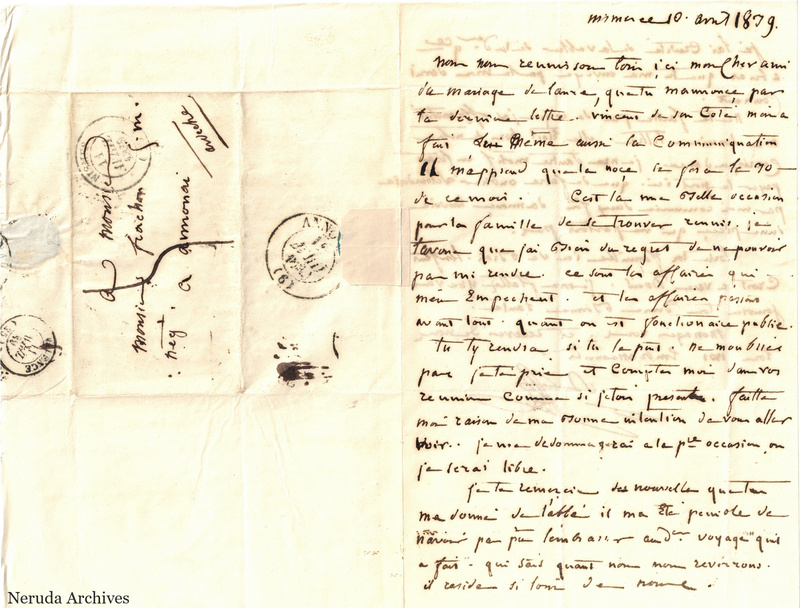 10. avril 1839.
nous nous reunisson tous ici mon Cher ami
du mariage de laure, que tu mannonce, par
ta derniere lettre. vincent de son Coté mon a
fait lui Même aussi la Communiquation
Il m'apprend que la noce se fera le 30
de ce mois. C'est la une Belle occasion
pour la famille de se trouver reunis. je
t'avoue que j'ai Bien du regret de ne pouvoir
par mi rendre. ce sont les affaires qui
men Empechent. et les affaires passent
avant tout. quant on est fonctionaire publie.
tu ty rendra si tu le puis. ne moublies
pas je te prie et Comptez moi dans vos
reunion Comme si jetois present. faitte
moi raison de ma Bonne intention de vous aller
voir. je me dedommagerai a la pre occasion, ou
je serai libre.
je te remercie des nouvelle que tu
me donne de l'abbé il ma Eté penible de
navoir pas pu lembrasser au der voyage quil
a fait. qui sais quant nous nous reverrons.
il reside si loin de nous.
a monsieur
Monsieur frachon f. m.
negt a annonai
ardeche
ANNO
(6)
Neruda Archives